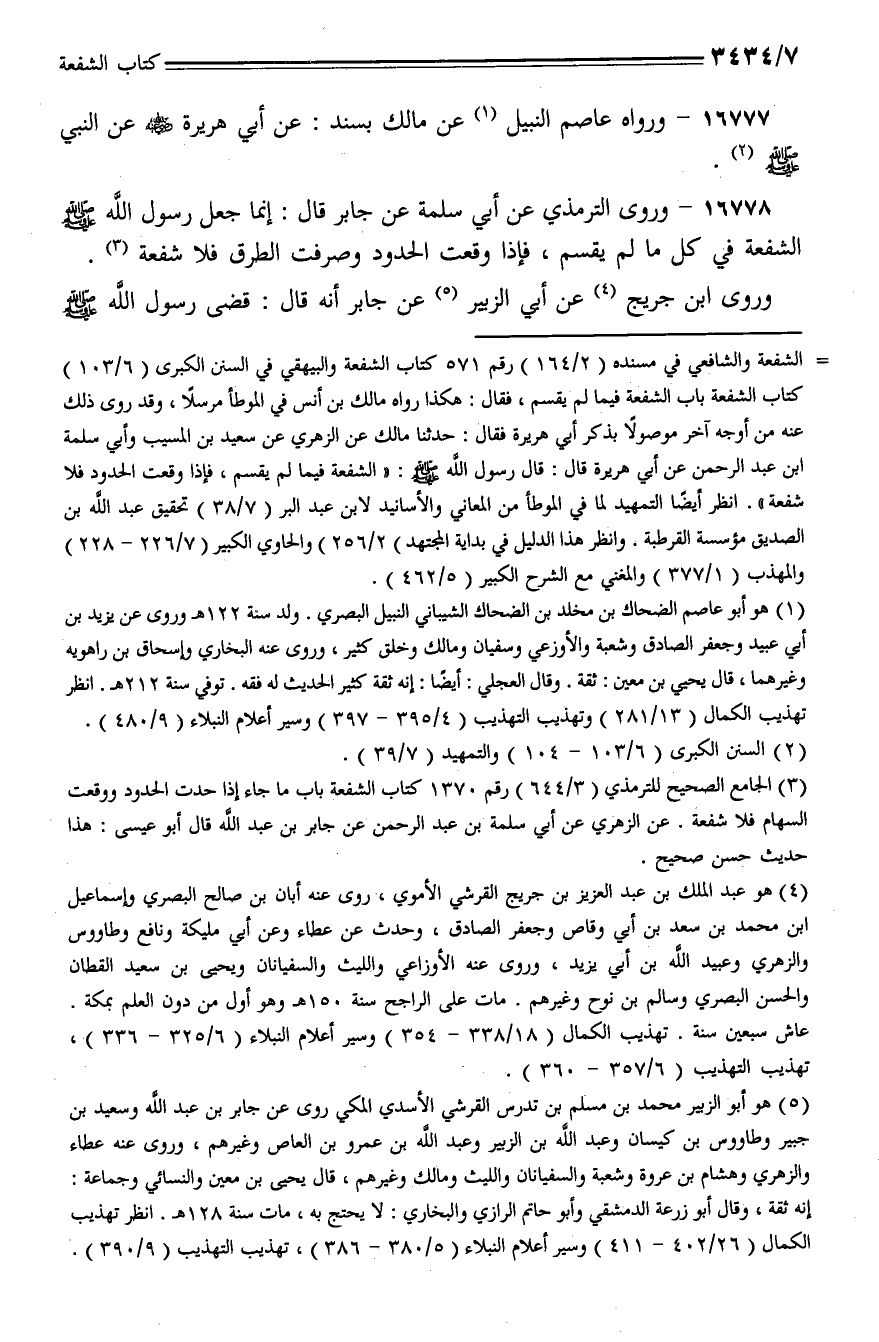 ٣٤٣٤/٧ كتاب الشفعة
١٦٧٧٧ - ورواه عاصم النبيل (١) عن مالك بسند : عن أبي هريرة ﵁ عن النبي
ﷺ (٢) .
١٦٧٧٨ - وروى الترمذي عن أبي سلمة عن جابر قال : إنما جعل رسول اللَّه ﷺ
الشفعة في كل ما لم يقسم ، فإذا وقعت الحدود وصرفت الطرق فلا شفعة (٣) .
وروى ابن جريج (٤) عن أبي الزبير (٥) عن جابر أنه قال : قضى رسول اللَّه ﷺ
= الشفعة والشافعي في مسنده ( ١٦٤/٢ ) رقم ٥٧١ كتاب الشفعة والبيهقي في السنن الكبرى ( ١٠٣/٦ )
كتاب الشفعة باب الشفعة فيما لم يقسم ، فقال : هكذا رواه مالك بن أنس في الموطأ مرسلًا ، وقد روى ذلك
عنه من أوجه آخر موصولًا بذكر أبي هريرة فقال : حدثنا مالك عن الزهري عن سعيد بن المسيب وأبي سلمة
ابن عبد الرحمن عن أبي هريرة قال : قال رسول اللَّه ﷺ : « الشفعة فيما لم يقسم ، فإذا وقعت الحدود فلا
شفعة » . انظر أيضًا التمهيد لما في الموطأ من المعاني والأسانيد لابن عبد البر ( ٣٨/٧ ) تحقيق عبد اللَّه بن
الصديق مؤسسة القرطبة . وانظر هذا الدليل في بداية المجتهد ) ٢٥٦/٢ ) والحاوي الكبير ( ٢٢٦/٧ - ٢٢٨ )
والمهذب ( ٣٧٧/١ ) والمغني مع الشرح الكبير ( ٤٦٢/٥ ) .
(١) هو أبو عاصم الضحاك بن مخلد بن الضحاك الشيباني النبيل البصري . ولد سنة ١٢٢هـ وروى عن يزيد بن
أبي عبيد وجعفر الصادق وشعبة والأوزعي وسفيان ومالك وخلق كثير ، وروى عنه البخاري وإسحاق بن راهويه
وغيرهما ، قال يحيى بن معين : ثقة . وقال العجلي : أيضًا : إنه ثقة كثير الحديث له فقه . توفي سنة ٢١٢هـ . انظر
تهذيب الكمال ( ٢٨١/١٣ ) وتهذيب التهذيب ( ٣٩٥/٤ - ٣٩٧ ) وسير أعلام النبلاء ( ٤٨٠/٩ ) .
(٢) السنن الكبرى ( ١٠٣/٦ - ١٠٤ ) والتمهيد ( ٣٩/٧ ) .
(٣) الجامع الصحيح للترمذي ( ٦٤٤/٣ ) رقم ١٣٧٠ كتاب الشفعة باب ما جاء إذا حدت الحدود ووقعت
السهام فلا شفعة . عن الزهري عن أبي سلمة بن عبد الرحمن عن جابر بن عبد اللَّه قال أبو عيسى : هذا
حديث حسن صحيح .
(٤) هو عبد الملك بن عبد العزيز بن جريج القرشي الأموي ، روى عنه أبان بن صالح البصري وإسماعيل
ابن محمد بن سعد بن أبي وقاص وجعفر الصادق ، وحدث عن عطاء وعن أبي مليكة ونافع وطاووس
والزهري وعبيد اللَّه بن أبي يزيد ، وروى عنه الأوزاعي والليث والسفيانان ويحيى بن سعيد القطان
والحسن البصري وسالم بن نوح وغيرهم . مات على الراجح سنة ١٥٠هـ وهو أول من دون العلم بمكة .
عاش سبعين سنة . تهذيب الكمال ( ٣٣٨/١٨ - ٣٥٤ ) وسير أعلام النبلاء ( ٣٢٥/٦ - ٣٣٦ ) ،
تهذيب التهذيب ( ٣٥٧/٦ - ٣٦٠ ) .
(٥) هو أبو الزبير محمد بن مسلم بن تدرس القرشي الأسدي المكي روى عن جابر بن عبد اللَّه وسعيد بن
جبير وطاووس بن كيسان وعبد اللَّه بن الزبير وعبد اللَّه بن عمرو بن العاص وغيرهم ، وروى عنه عطاء
والزهري وهشام بن عروة وشعبة والسفيانان والليث ومالك وغيرهم ، قال يحيى بن معين والنسائي وجماعة :
إنه ثقة ، وقال أبو زرعة الدمشقي وأبو حاتم الرازي والبخاري : لا يحتج به ، مات سنة ١٢٨هـ . انظر تهذيب
الكمال ( ٤٠٢/٢٦ - ٤١١ ) وسير أعلام النبلاء ( ٣٨٠/٥ - ٣٨٦ ) ، تهذيب التهذيب ( ٣٩٠/٩ ) .